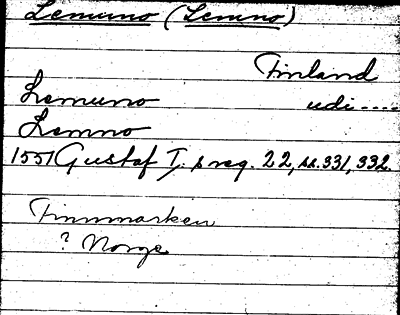 Lemuno (Lemno)
Finland
Lemuno udi----
Lemno
1551 Gustaf I:s reg. 22, ss. 331, 332.
Finnmarken
? Norge